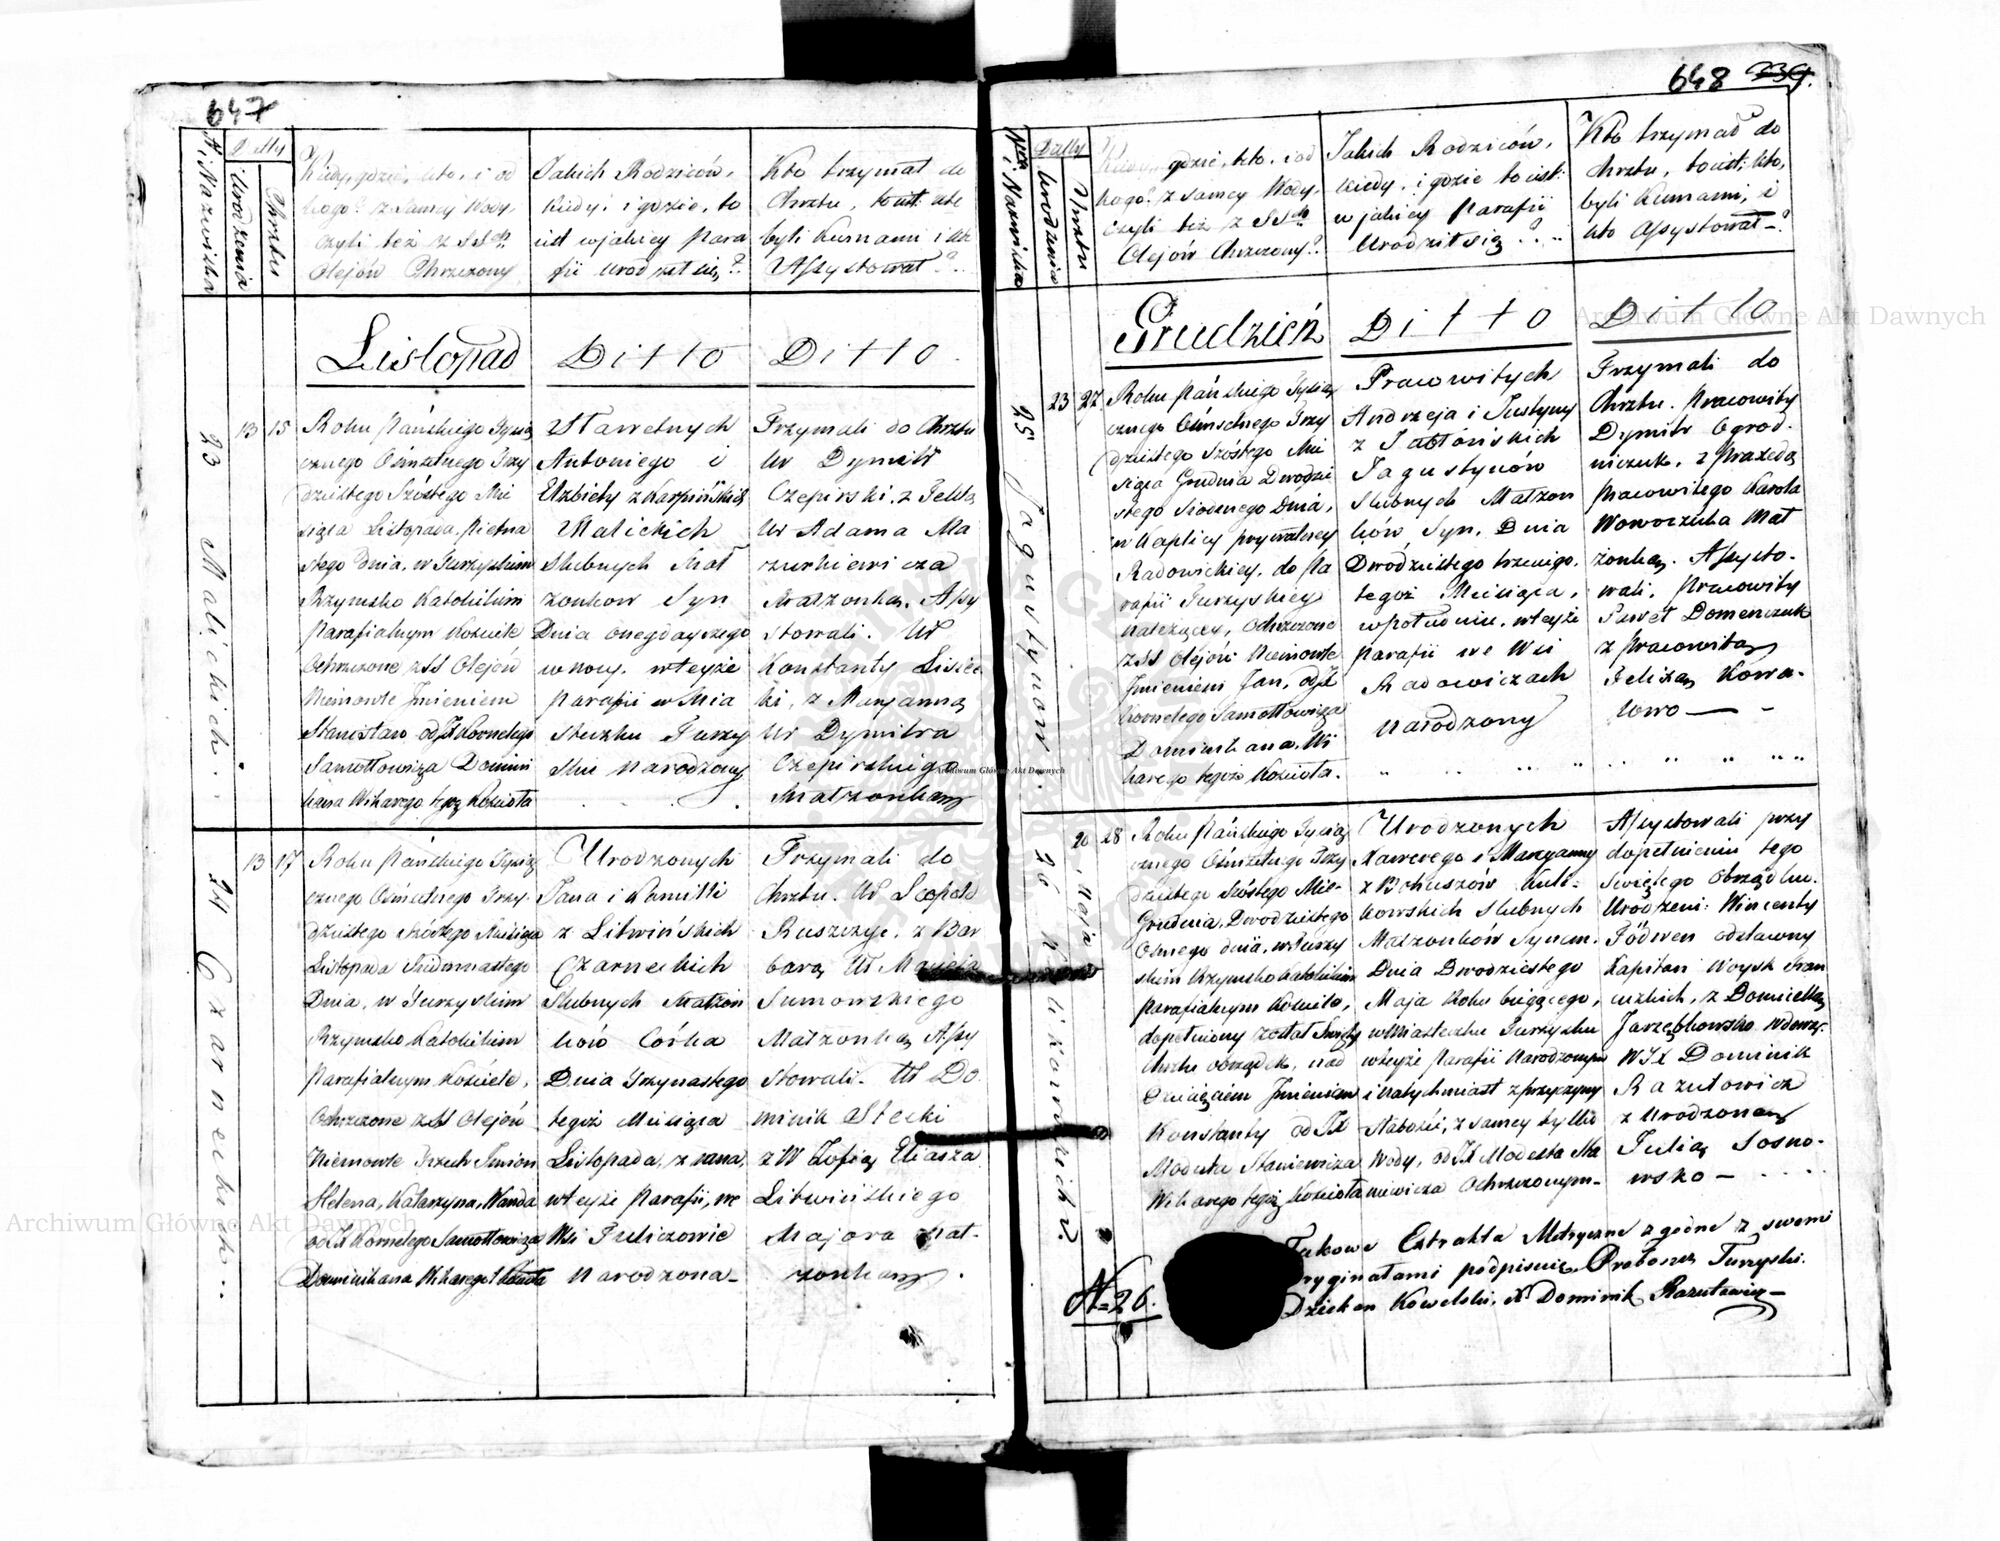 647
N. i Nazwiska
Datty
Urodzenia
Chrztu
Kiedy, gdzie, kto, i od
kogo? z Samey Wody,
czyli też z SSch
Olejów Chrzczony
Jakich Rodziców,
kiedy, i gdzie, to
iest w jakiey Para
fii urodził się?
Kto trzymał do
Chrztu, to iest: kto
byli Kumami i kto
Assystował?
Listopad
Ditto
Ditto
23 Malickich
13
15
Roku Pańskiego Tysią
cznego Ośmsetnego Trzy
dziestego Szóstego Mie
siąca Listopada, Pietna
stego Dnia, w Turzyskim
Rzymsko Katolickim
Parafialnym Kościele
Ochrzczone z SS Olejów
Niemowle Imieniem
Stanisław od JX Kornelego
Samottowicza Domini
kana Wikarego tegoż Kościoła
Sławetnych
Antoniego i
Elżbiety z Karpińskich
Malickich
Slubnych Mał
żonkow Syn
Dnia onegdayszego
w nocy, w teyże
Parafii w Mia
steczku Turzy
sku Narodzony
Trzymali do Chrztu
Ur Dymitr
Czepirski, z Teklą
Ur Adama Ma
zurkiewicza
Małżonką, Assy
stowali. Ur
Konstanty Lisiec
ki, z Maryanną
Ur Dymitra
Czepirskiego
Małżonką
24 Czarneckich
13
17
Roku Pańskiego Tysią
cznego Ośmsetnego Trzy
dziestego Szóstego Miesiąca
Listopada Siedmnastego
Dnia, w Turzyskim
Rzymsko Katolickim
Parafialnym Kościele,
Ochrzczone z SS Olejów
Niemowle Trzech Imion
Helena, Katarzyna, Wanda
od JX Kornelego Samottowicza
Dominikana Wikarego t. Kościoła
Urodzonych
Jana i Kamilli
z Litwińskich
Czarneckich
Slubnych Małżon
ków Córka
Dnia Trzynastego
tegoż Miesiąca
Listopada, z rana,
w teyże Parafii, we
Wsi Tuliczowie
Narodzona
Trzymali do
Chrztu. Ur Leopold
Ruszczyc, z Bar
barą Ur Macieja
Sumowskiego
Małżonką Assy
stowali. Ur Do
minik Stecki
z W Zofią Eliasza
Litwińskiego
Majora Mał-
żonką.
648
N. i Nazwiska
Datty
Urodzenia
Chrztu
Kiedy, gdzie, kto, i od
kogo? z Samey Wody,
czyli też z SSch
Olejów Chrzczony?
Jakich Rodziców,
kiedy, i gdzie to iest:
w jakiey Parafii
Urodził się?
Kto trzymał do
Chrztu, to iest: kto,
byli Kumami, i
kto Assystował?
Grudzień
Ditto
Ditto
25 Jagustynow
23
27
Roku Pańskiego Tysią
cznego Ośmsetnego Trzy
dziestego Szóstego Mie
siąca Grudnia Dwodzie
stego Siodmego Dnia,
w Kaplicy prywatney
Radowickiey, do Pa
rafii Turzyskiey
należącey, Ochrzczone
z SS Olejów Niemowle
Imieniem Jan, od JX
Kornelego Samottowicza
Dominikana Wi
karego tegoż Kościoła.
Pracowitych
Andrzeja i Justyny
z Jabłońskich
Jagustynów
Slubnych Małżon
ków, Syn, Dnia
Dwodziestego trzeciego,
tegoż Miesiąca,
w południe, w teyże
Parafii we Wsi
Radowiczach
Narodzony
Trzymali do
Chrztu. Pracowity
Dymitr Ogrod-
niczuk, z Praxedą
Pracowitego Karola
Wowoczuka Mał
żonką. Assysto-
wali, Pracowity
Paweł Domenczuk
z Pracowitą
Felixą Kowa-
lowo
26
20 Maja
28
Roku Pańskiego Tysią
cznego Ośmsetnego Trzy
dziestego Szóstego Mie-
Grudnia, Dwodziestego
Osmego dnia, w Turzy
skim Rzymsko Katolickim
Parafialnym Kościele,
dopełniony został Święty
Chrztu obrządek, nad
Dziecięciem Imieniem
Konstanty od JX
Modesta Staniewicza
Wikarego tegoż Kościoła
Urodzonych
Xawerego i Maryanny
z Bohuszów Kuli-
kowskich Slubnych
Małżonków Synem.
Dnia Dwodziestego
Maja Roku bieżącego,
w Miasteczku Turzysku
w teyże Parafii Narodzonym
i natychmiast z przyczyny
słabości, z samey tylko
Wody, od JX Modesta Sta
niewicza Ochrzczonym
Assystowali przy
dopełnieniu tego
Swiętego Obrządku.
Urodzeni: Wincenty
Födwen odstawny
Kapitan Woysk Fran
cuzkich, z Domicellą
Jarzębkowsko wdową.
WJX Dominik
Razutowicz
z Urodzoną
Julią Sosno-
wsko
Takowe Extrakta Metryczne zgodne z swemi
Oryginałami podpisuię Proboszcz Turzyski.
Dziekan Kowelski. X Dominik Razutowicz
N=26.
Archiwum Główne Akt Dawnych
Archiwum Główne Akt Dawnych
Archiwum Główne Akt Dawnych